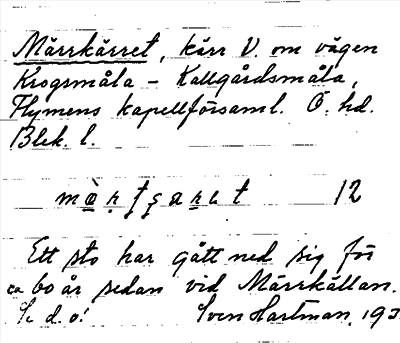 Märrkärret, kärr V. om vägen
Krogsmåla - Kallgårdsmåla,
Flymens kapellförsaml. Ö. hd.
Blek. l.
12
Ett sto har gått ned sig för
ca 60 år sedan vid Märrkällan.
Se d. o! Sven Hartman, 193